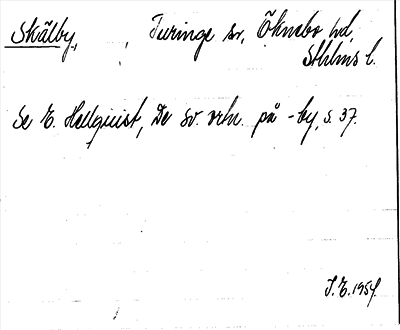 Skälby, , Turinge sn, Öknebo hd,
Sthlms l.
Se E. Hellquist, De sv. ortn. på -by, s. 37.
I.E. 1954.